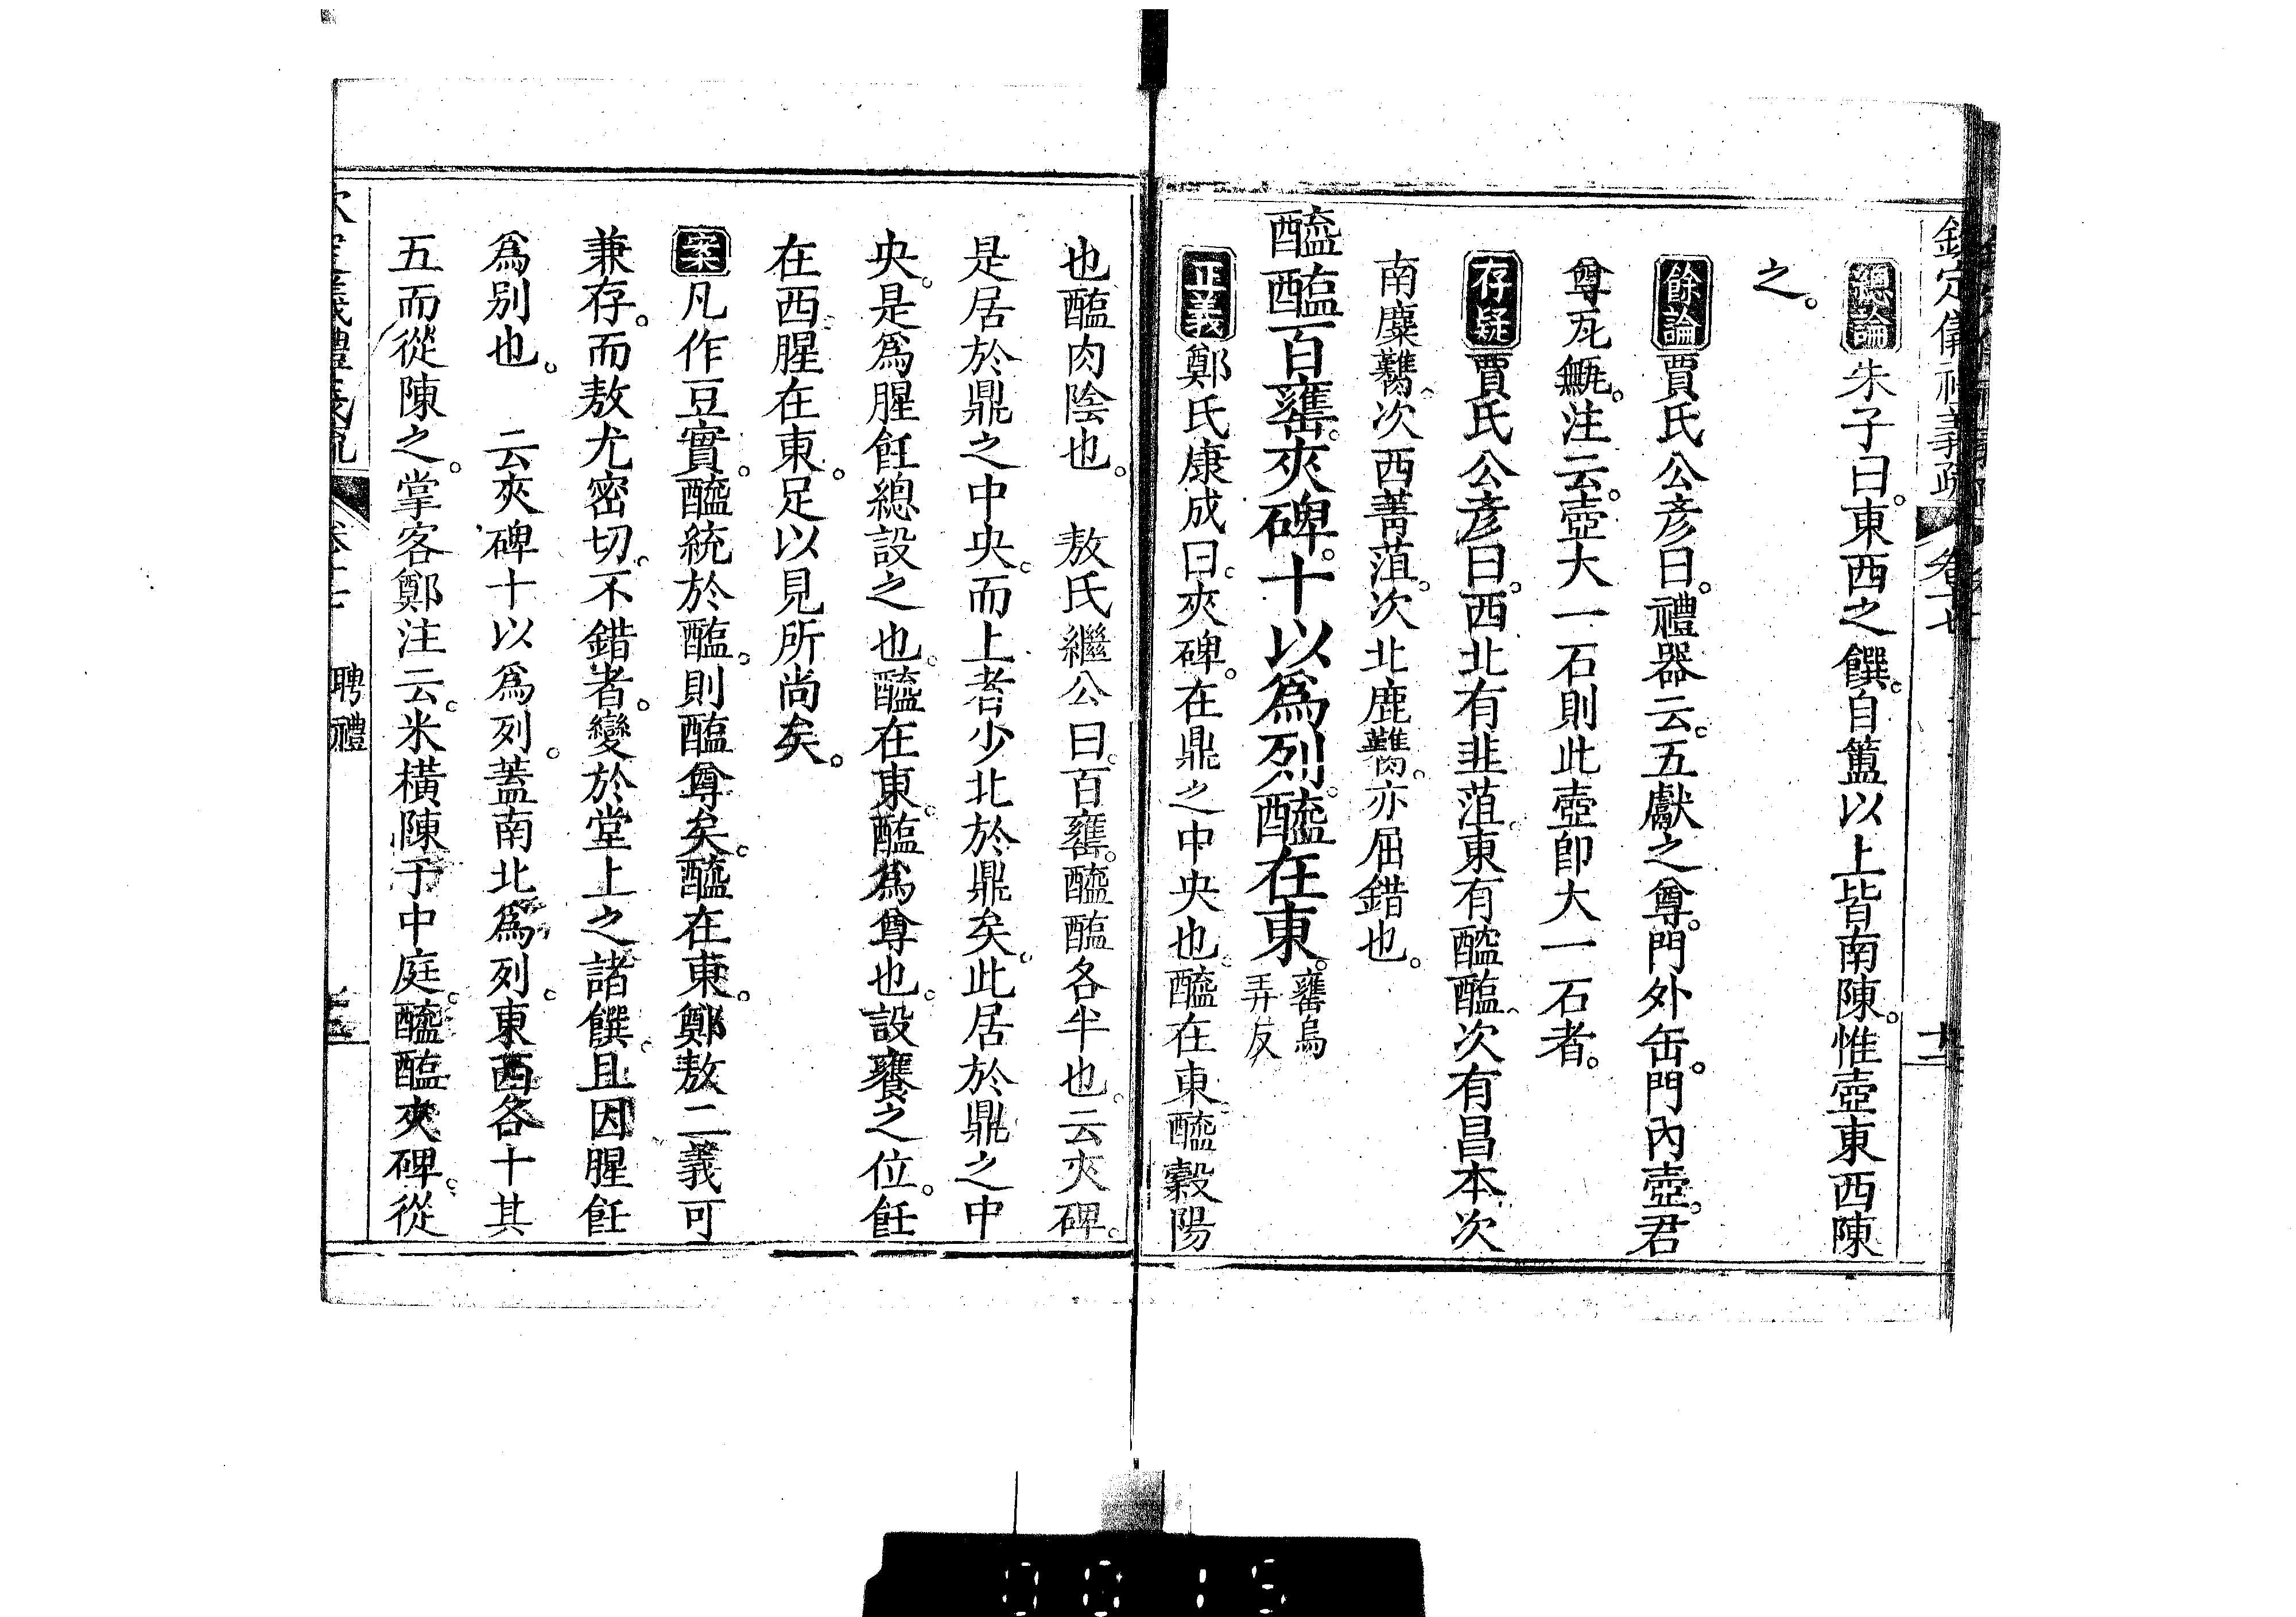 欽定儀禮義疏 卷十七
總論朱子曰。東西之饌。自簠以上皆南陳。惟壺東西陳
之。
餘論賈氏公彦曰。禮器云。五獻之尊。門外缶。門內壺。君
尊瓦甒。注云。壺大一石則此壺卽大一石者。
存疑賈氏公彦曰。西北有韭菹。東有醓醢。次有昌本次
南麋臡。次西菁菹。次北鹿臡。亦屈錯也。
醯醢百罋。夾碑。十以爲列。醯在東。罋烏弄反
正義鄭氏康成曰。夾碑。在鼎之中央也。醯在東。醯穀陽
也醢肉陰也。 敖氏繼公曰。百罋。醯醢各半也。云夾碑。
是居於鼎之中央。而上者少北於鼎矣。此居於鼎之中
央。是爲腥飪總設之也。醯在東。醢爲尊也。設饔之位。飪
在西腥在東。足以見所尚矣。
案凡作豆實。醯統於醢。則醢尊矣。醯在東。鄭敖二義可
兼存。而敖尤密切。不錯者。變於堂上之諸饌。且因腥飪
爲別也。 云夾碑十以爲列。蓋南北爲列。東西各十其
五而從陳之。掌客鄭注云。米橫陳于中庭。醯醢夾碑。從
聘禮